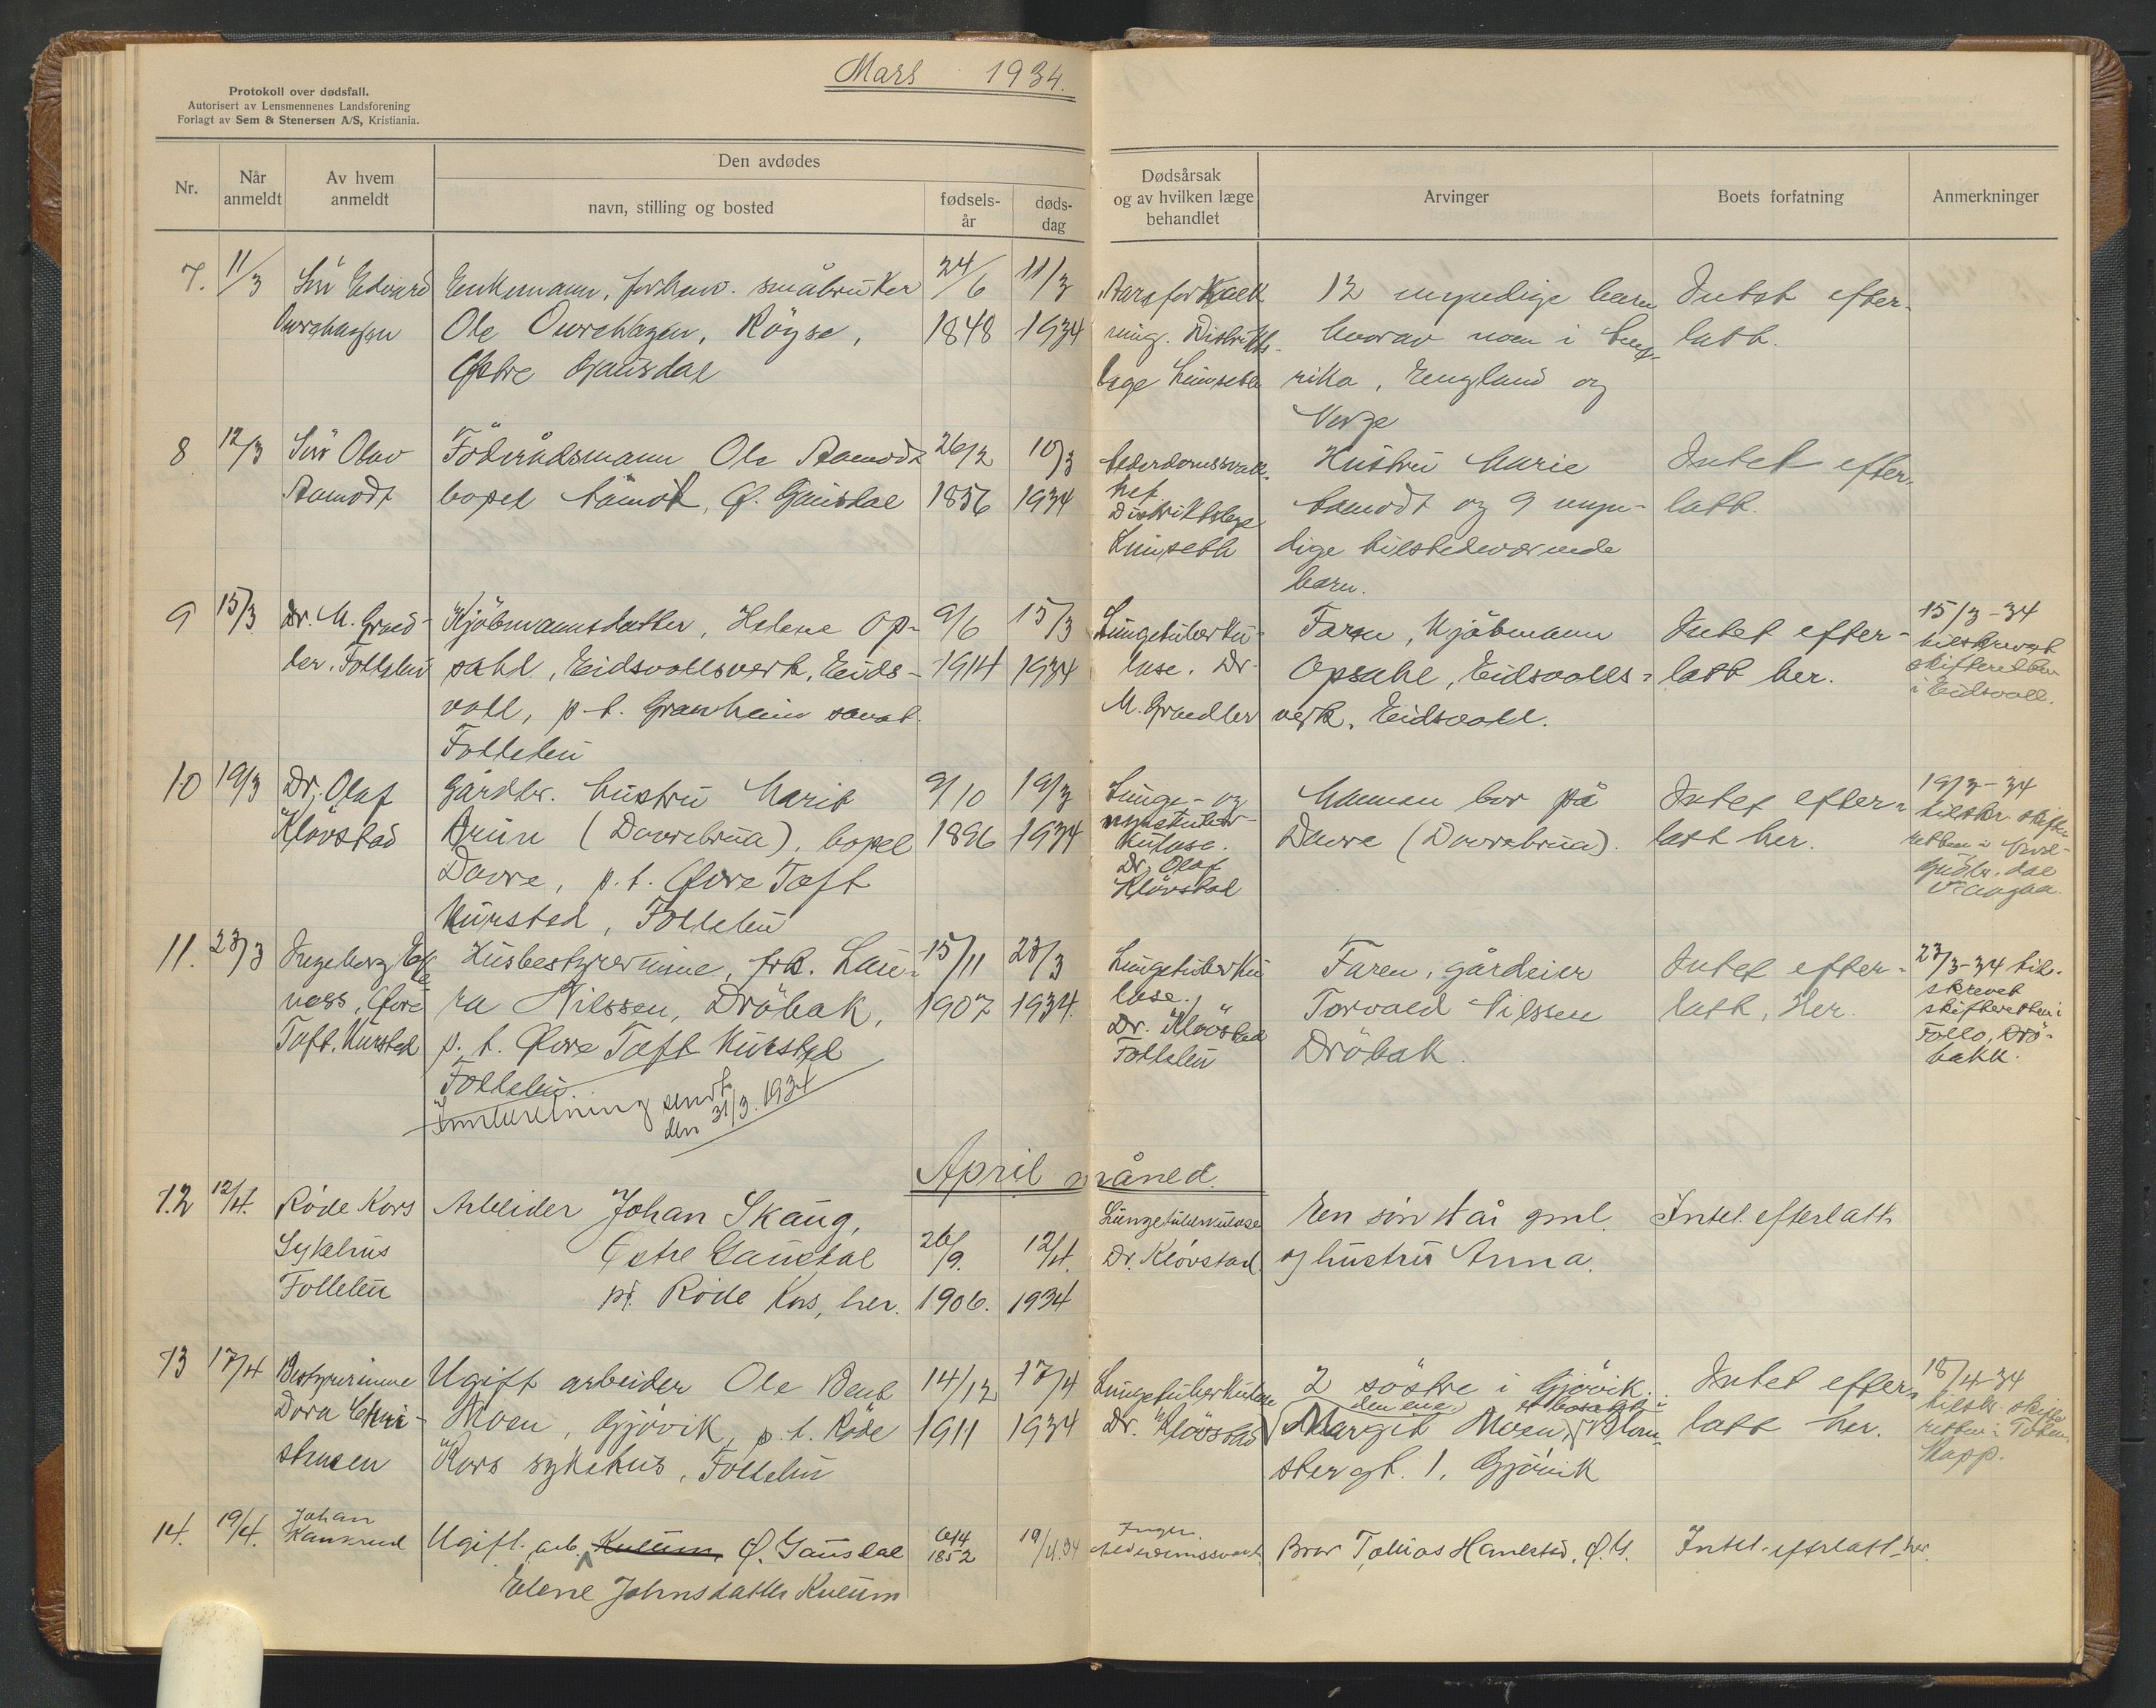 Mars 1934.
Protokoll over dødsfall.
Autorisert av Lensmennenes Landsforening
Forlagt av Sem & Stenersen A/S, Kristiania.
Nr.
Når anmeldt
Av hvem anmeldt
Den avdødes
navn, stilling og bosted
fødsels-
år
døds-
dag
Dødsårsak
og av hvilken læge
behandlet
Arvinger
Boets forfatning
Anmerkninger
7.
11/3
Sön Edvard
Enkemann, forhenv. småbruker
Ole Overhagen, Röyse,
Østre Gausdal
24/6
1848
11/3
1934
Aareforkalk
ning. Distrikts-
læge
12 myndige barn
hvorav noen i
rika, England og
Norge
Intet efter-
latt.
8
12/3
Sön Olav
Aamodt
Föderådsmann Ole Aamodt
bopel Åmot, Ø. Gausdal
26/2
1856
10/3
1934
Distriktslæge
Hustru Marie
Aamodt og 9 myn-
dige tilstedeværende
barn.
Intet efter-
latt.
9
15/3
Dr. M. Græd-
ler. Follebu
Kjöbmannsdatter, Helene Op-
sahl, Eidsvollsverk, Eids-
voll, p.t. Granheim sanat.
Follebu
9/6
1914
15/3
1934
Lungetuberku-
lose. Dr.
M. Grædler
Faren, Kjöbmann
Opsahl, Eidsvolls-
verk, Eidsvoll.
Intet efter-
latt her.
15/3-34
tilskrevet
skifteretten
i Eidsvoll.
10
19/3
Dr. Olaf
Klövstad
Gårdbr. hustru Marit
Arün (Dovrebrua), bopel
Dovre, p.t. Øvre Toft
Kursted, Follebu
9/10
1896
19/3
1934
Lunge- og
kulose.
Dr. Olaf
Klövstad
Mannen bor på
Dovre (Dovrebrua).
Intet efter-
latt her.
19/3-34
tilskr. skifte
retten i Nord-
Gudbr. dal
Vaagaa.
11.
23/3
Ingeborg
næss, Øvre
Toft. Kursted
Husbestyrerinne, frk. Lau-
ra Nilssen, Dröbak,
p.t. Øvre Toft Kursted
Follebu.
Innberetning sendt
den 31/3. 1934
15/11
1907
23/3
1934.
Lungetuberku
lose.
Dr. Klövstad
Follebu
Faren, gårdeier
Torvald Nilssen
Dröbak.
Intet efter-
latt, her.
23/3-34 til-
skrevet
skifteretten i
Follo, Drö-
bakk.
April måned.
12
12/4.
Röde Kors
Sykehus
Follebu
Arbeider Johan Skaug,
Östre Gausdal
pt. Röde Kors, her.
26/9.
1906.
12/4.
1934
Lungetuberkulose
Dr. Klövstad.
En sön 4 år gml.
og hustru Anna.
Intet efterlatt
13
17/4
Bestyrerinne
Dora Chri-
stensen
Ugift arbeider Ole Bent
Moen, Gjövik, p.t. Röde
Kors sykehus, Follebu
14/12
1911
17/4
1934
Lungetuberkulose
Dr. Klövstad
2 söstre i Gjövik.
den ene, er bosatt i
Margit Moen, Blom-
stergt. 1, Gjövik
Intet efter-
latt her.
18/4-34
tilskr. skifte
retten i Toten,
Kapp.
14.
19/4.
Johan
Ugift. arb. Kuleum, Ø. Gausdal
Elene Johnsdatter Kuleum
1852
19/4.34
Ingen.
Alderdomssvakh.
Bror Tobias Hanestad, Ø. G.
Intet efterlatt her.